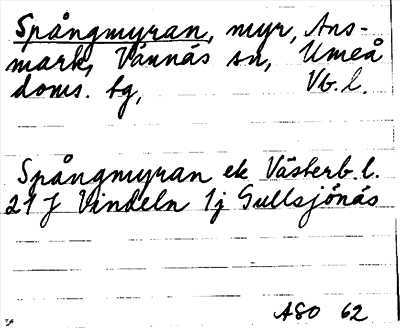 Spångmyran, myr, Ans-
mark, Vännäs sn, Umeå
doms. tg, Vb. l.
Spångmyran ek Västerb. l.
21 J Vindeln 1j Gullsjönäs
ASO 62